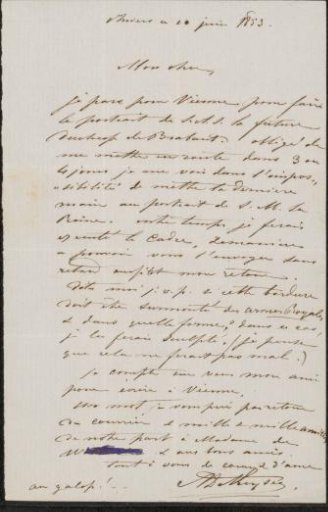 Anvers ce 10 juin 1853.
Mon cher,
je pars pour Vienne pour faire
le portrait de S.A.I. la future
Duchesse de Brabant. obligé de
me mettre en route dans 3 ou
4 jours je me vois dans l'impos-
sibilité de mettre la dernière
main au portrait de S. M. la
Reine. entre temps je ferais
exécuter le Cadre, de manière
a pouvoir vous l'envoyer sans
retard aussitôt mon retour.
Dites moi, s. v. p. si cette bordure
doit être surmontée des armes Royales
& dans quelle forme? dans ce cas,
je les ferais sculpter. (je pense
que cela ne ferait pas mal.)
je compte sur vous mon ami
pour écrire à Vienne.
Un mot, s. v. p. par retour
du courrier & mille & mille amitiés
de notre part à Madame de
& aux bons amis.
tout à vous de coeur & d'ame
au galop!..